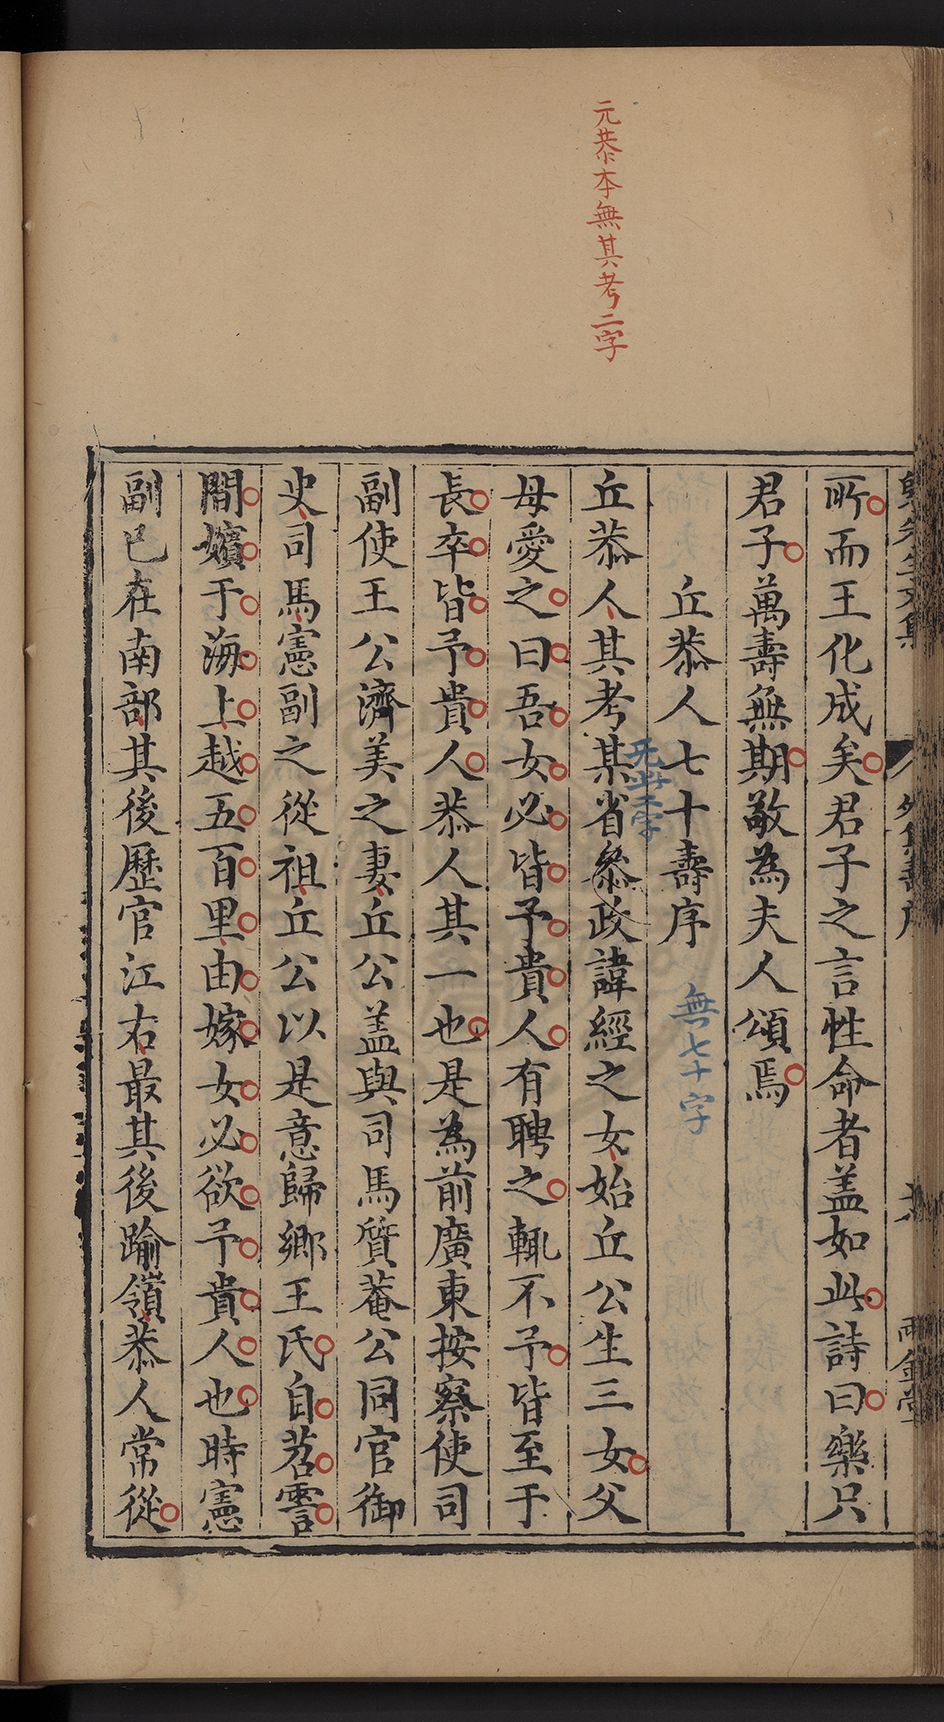 元恭本無其考二字
所而王化成矣君子之言性命者盖如此詩曰樂只
君子萬壽無期敬為夫人頌焉
丘恭人七十壽序
無七十字
丘恭人其考某省叅政諱經之女始丘公生三女父
母愛之曰吾女必皆予貴人有聘之輒不予皆至于
長卒皆予貴人恭人其一也是為前廣東按察使司
副使王公濟美之妻丘公盖與司馬質菴公同官御
史司馬憲副之從祖丘公以是意歸鄉王氏自苕霅
間嬪于海上越五百里由嫁女必欲予貴人也時憲
副已在南部其後歷官江右最其後踰嶺恭人常從